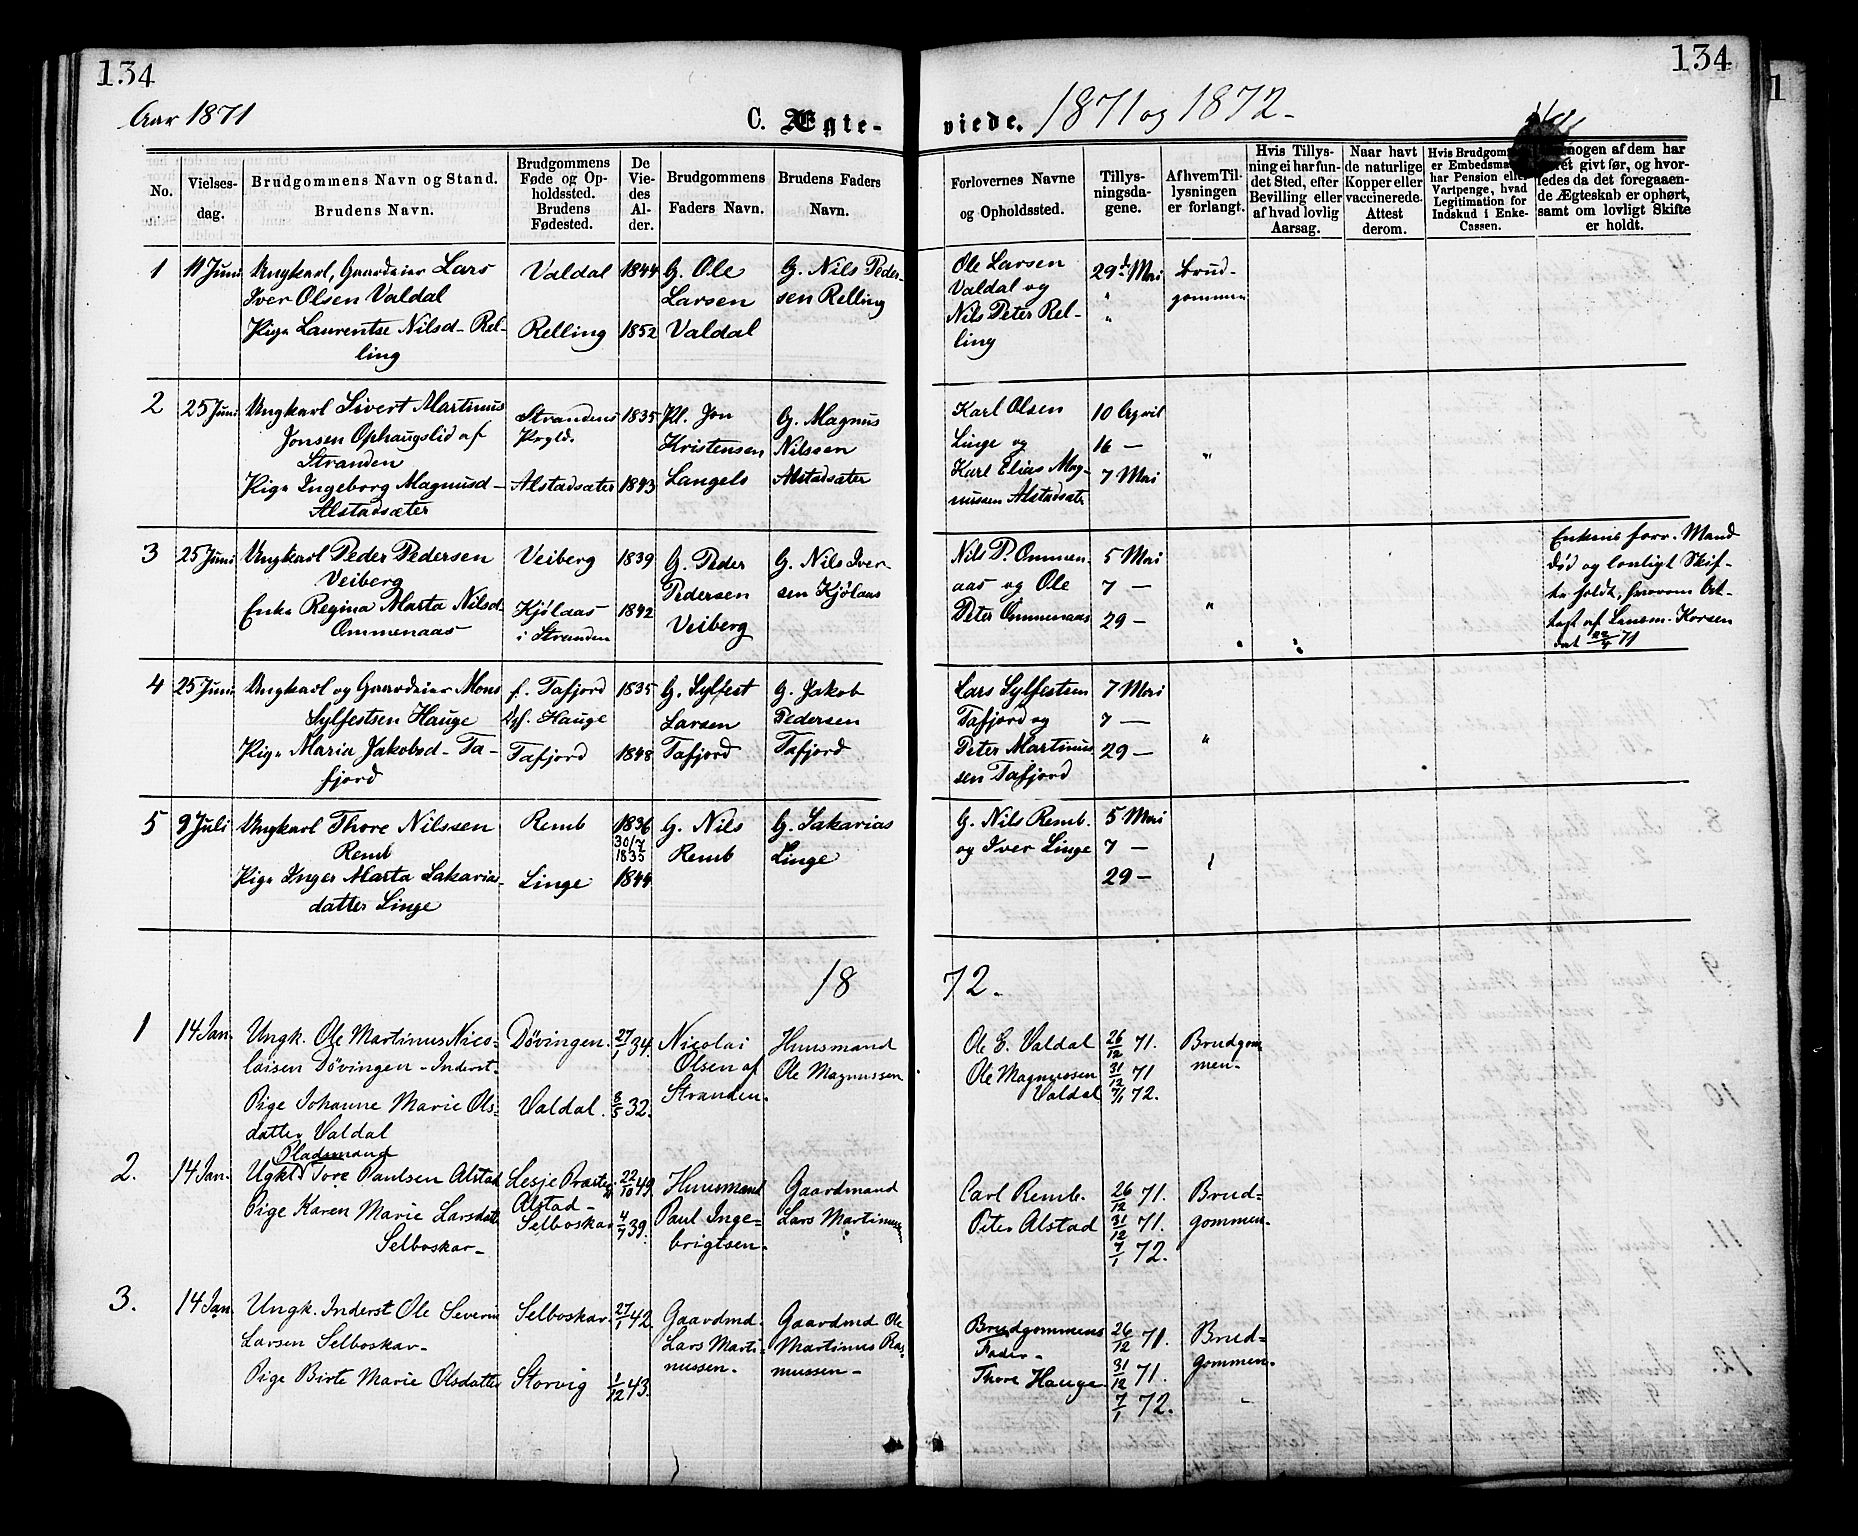 134
134
Aar 1871
C. Ægte-
viede.
1871 og 1872.
No.
Vielses-
dag.
Brudgommens Navn og Stand.
Brudens Navn.
Brudgommens
Føde og Op-
holdssted.
Brudens
Fødested.
De
Vie-
des
Al-
der.
Brudgommens
Faders Navn.
Brudens Faders
Navn.
Forlovernes Navne
og Opholdssted.
Tillys-
ningsda-
gene.
Af hvem Til-
lysningen
er forlangt.
Hvis Tillys-
ning ei har fun-
det Sted, efter
Bevilling eller
af hvad lovlig
Aarsag.
Naar havt
de naturlige
Kopper eller
vaccinerede.
Attest
derom.
Hvis Brudgom
er Embedsma
har Pension eller
Vartpenge, hvad
Legitimation for
Indskud i Enke-
Cassen.
nogen af dem har
ret givt før, og hvor-
ledes da det foregaaen-
de Ægteskab er ophørt,
samt om lovligt Skifte
er holdt.
1 11 Juni Ungkarl, Gaardeier Lars Valdal 1844 G. Ole G. Nils Peder- Ole Larsen 29de Mai Brud-
Iver Olsen Valdal Larsen sen Relling Valdal og " gommen
Pige Laurentse Nilsd. Rel- Relling 1852 Valdal Nils Peter Rel- "
ling ling
2 25 Juni Ungkarl Sivert Martinus Strandens 1835 Pl. Jon G. Magnus Karl Olsen 10 April
Jonsen Ophaugslid af Prgld. Kristensen Nilssen Linge og 16 — "
Stranden
Pige Ingeborg Magnusd- Alstadsæter 1843 Langels Alstadsæter Karl Elias Mag- 7 Mai
Alstadsæter nussen Alstadsæter
3 25 Juni Ungkarl Peder Pedersen Veiberg 1839 G. Peder G. Nils Iver- Nils P. Ommen- 5 Mai Enkens forr. Mand
Veiberg Pedersen sen Kjölaas aas og Ole 7 — død og lovligt Skif-
Enke Regina Marta Nilsd. Kjölaas 1842 Veiberg Peter Ommenaas 29 — " te holdt, hvorom At-
Ommenaas i Stranden test af Lensm. Korsen
dat 22/4 71
4 25 Juni Ungkarl og Gaardeier Mons f. Tafjord 1835 G. Sylfest G. Jakob Lars Sylfestsen 7 Mai
Sylfestsen Hauge Hauge Larsen Pedersen Tafjord og 7 —
Pige Maria Jakobsd- Ta- Tafjord 1848 Tafjord Tafjord Peter Martinus- 29 — "
fjord sen Tafjord
5 9 Juli Ungkarl Thore Nilssen Remb 1836 G. Nils G. Sakarias G. Nils Remb. 5 Mai
Remb 30/7 1835 Remb Linge og Iver Linge 7 —
Pige Inger Marta Sakarias- Linge 1844 29 —
datter Linge
1872.
1 14 Jan. Ungk. Ole Martinus Nico- Dövingen. 27/1 34. Nicolai Huusmand Ole E. Valdal 26/12 71. Brudgom
laisen Dövingen - Inderst- Olsen af Ole Magnussen Ole Magnussen 31/12 71 men-
Pige Johanne Marie Ols- Valdal. 8/5 32. Stranden. Valdal 7/1 72.
datter Valdal
Pladsmand
2. 14 Jan. Ugkl Tore Paulsen Alstad Lesje Præsteg 22/10 49. Huusmand Gaardmand Carl Remb. 26/12 71. Brud=
Alstad-
Pige Karen Marie Larsdatt Selboskar 4/7 39. Paul Inge- Lars Martinussen Peter Alstad 31/12 71. gommen-
Selboskar- brigtsen. 7/1 72.
3. 14 Jan. Ungk. Inderst Ole Severin Selboskar 27/1 42. Gaardmd. Gaardmd Ole Brudgommens 26/12 71. Brud=
Larsen Selboskar- Lars Marti- Martinus Ras Fader- 31/12 71. gommen-
Pige Birte Marie Olsdatter Storvig 1/12 43. nussen. mussen- Thore Hauge 7/1 72.